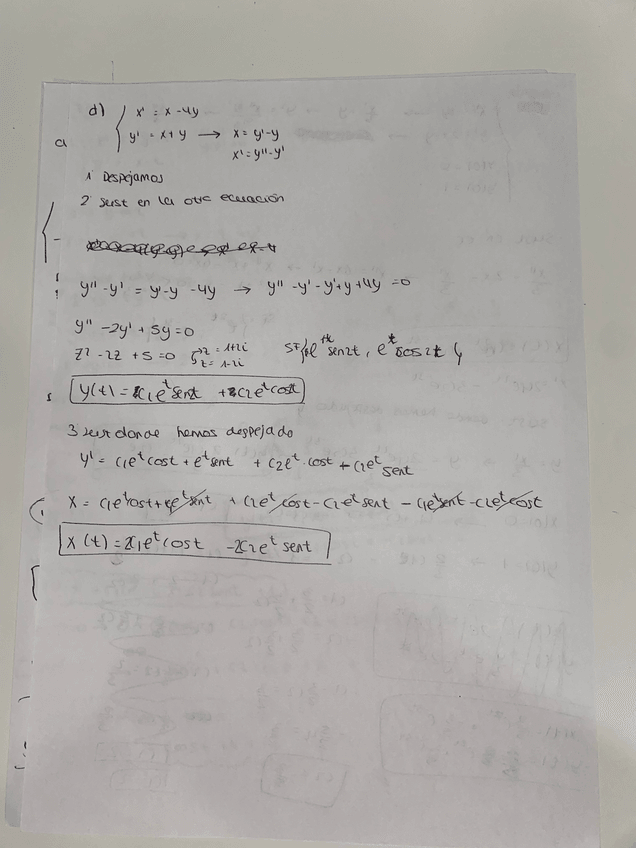 d) x' = x - 4y
a y' = x + y → x = y' - y
x' = y'' - y'
1 Despejamos
2 sust en la otra ecuación
y'' - y' = y' - y - 4y → y'' - y' - y' + y + 4y = 0
y'' - 2y' + 5y = 0
z² - 2z + 5 = 0 z = 1+2i z = 1-2i SF { e^t sen2t, e^t cos2t }
y(t) = c1e^t sent + c2e^t cost
3 sust donde hemos despejado
y' = c1e^t cost + e^t sent + c2e^t · cost + c2e^t sent
x = c1e^t cost + c1e^t sent + c2e^t cost - c2e^t sent - c1e^t sent - c2e^t cost
x(t) = 2c1e^t cost - 2c2e^t sent